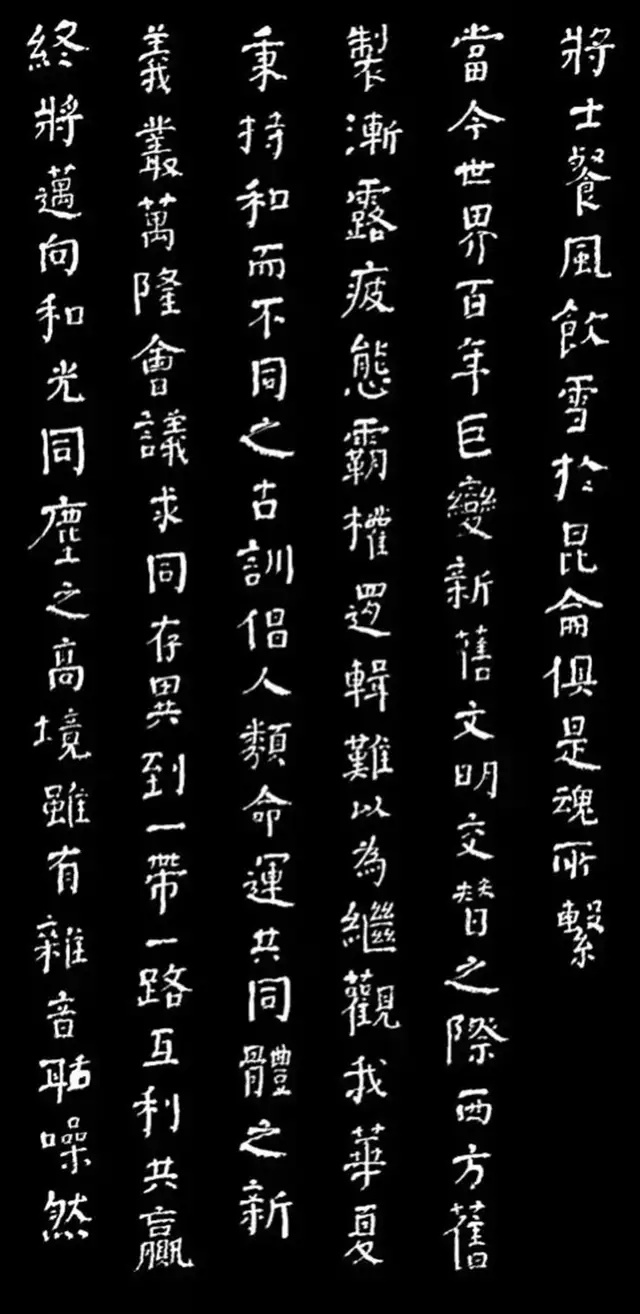 將士餐風飲雪於昆侖俱是魂所繫
當今世界百年巨變新舊文明交替之際西方舊
製漸露疲態霸權邏輯難以為繼觀我華夏
秉持和而不同之古訓倡人類命運共同體之新
義叢萬隆會議求同存異到一帶一路互利共贏
終將邁向和光同塵之高境雖有雜音聒噪然